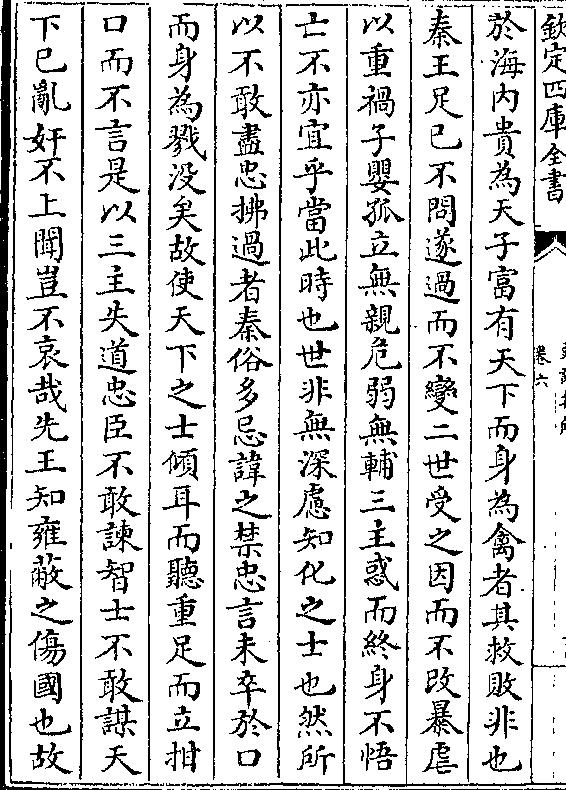 欽定四庫全書
卷六
於海内貴為天子富有天下而身為禽者其救敗非也
秦王足已不問遂過而不變二世受之因而不改暴虐
以重禍子嬰孤立無親危弱無輔三主惑而終身不悟
亡不亦宜乎當此時也世非無深慮知化之士也然所
以不敢盡忠拂過者秦俗多忌諱之禁忠言未卒於口
而身為戮没矣故使天下之士傾耳而聽重足而立拑
口而不言是以三主失道忠臣不敢諫智士不敢謀天
下已亂奸不上聞豈不哀哉先王知雍蔽之傷國也故